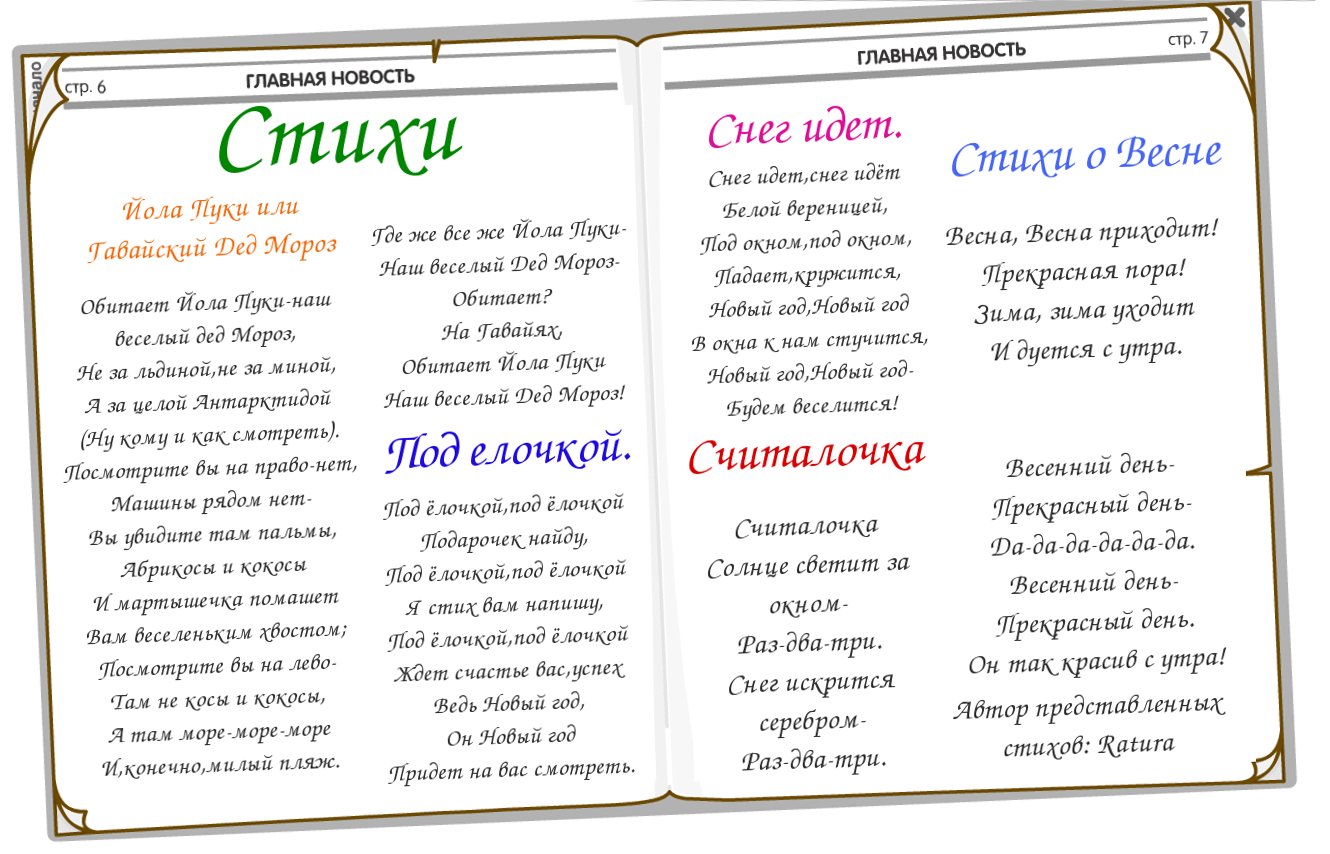 стр. 6
ГЛАВНАЯ НОВОСТЬ
Стихи
Йола Пуки или
Гавайский Дед Мороз
Обитает Йола Пуки-наш
веселый дед Мороз,
Не за льдиной,не за миной,
А за целой Антарктидой
(Ну кому и как смотреть).
Посмотрите вы на право-нет,
Машины рядом нет-
Вы увидите там пальмы,
Абрикосы и кокосы
И мартышечка помашет
Вам веселеньким хвостом;
Посмотрите вы на лево-
Там не косы и кокосы,
А там море-море-море
И,конечно,милый пляж.
Где же все же Йола Пуки-
Наш веселый Дед Мороз-
Обитает?
На Гавайях,
Обитает Йола Пуки
Наш веселый Дед Мороз!
Под елочкой.
Под ёлочкой,под ёлочкой
Подарочек найду,
Под ёлочкой,под ёлочкой
Я стих вам напишу,
Под ёлочкой,под ёлочкой
Ждет счастье вас,успех
Ведь Новый год,
Он Новый год
Придет на вас смотреть.
ГЛАВНАЯ НОВОСТЬ
стр. 7
Снег идет.
Снег идет,снег идёт
Белой вереницей,
Под окном,под окном,
Падает,кружится,
Новый год,Новый год
В окна к нам стучится,
Новый год,Новый год-
Будем веселится!
Считалочка
Считалочка
Солнце светит за
окном-
Раз-два-три.
Снег искрится
серебром-
Раз-два-три.
Стихи о Весне
Весна, Весна приходит!
Прекрасная пора!
Зима, зима уходит
И дуется с утра.
Весенний день-
Прекрасный день-
Да-да-да-да-да-да.
Весенний день-
Прекрасный день.
Он так красив с утра!
Автор представленных
стихов: Ratura